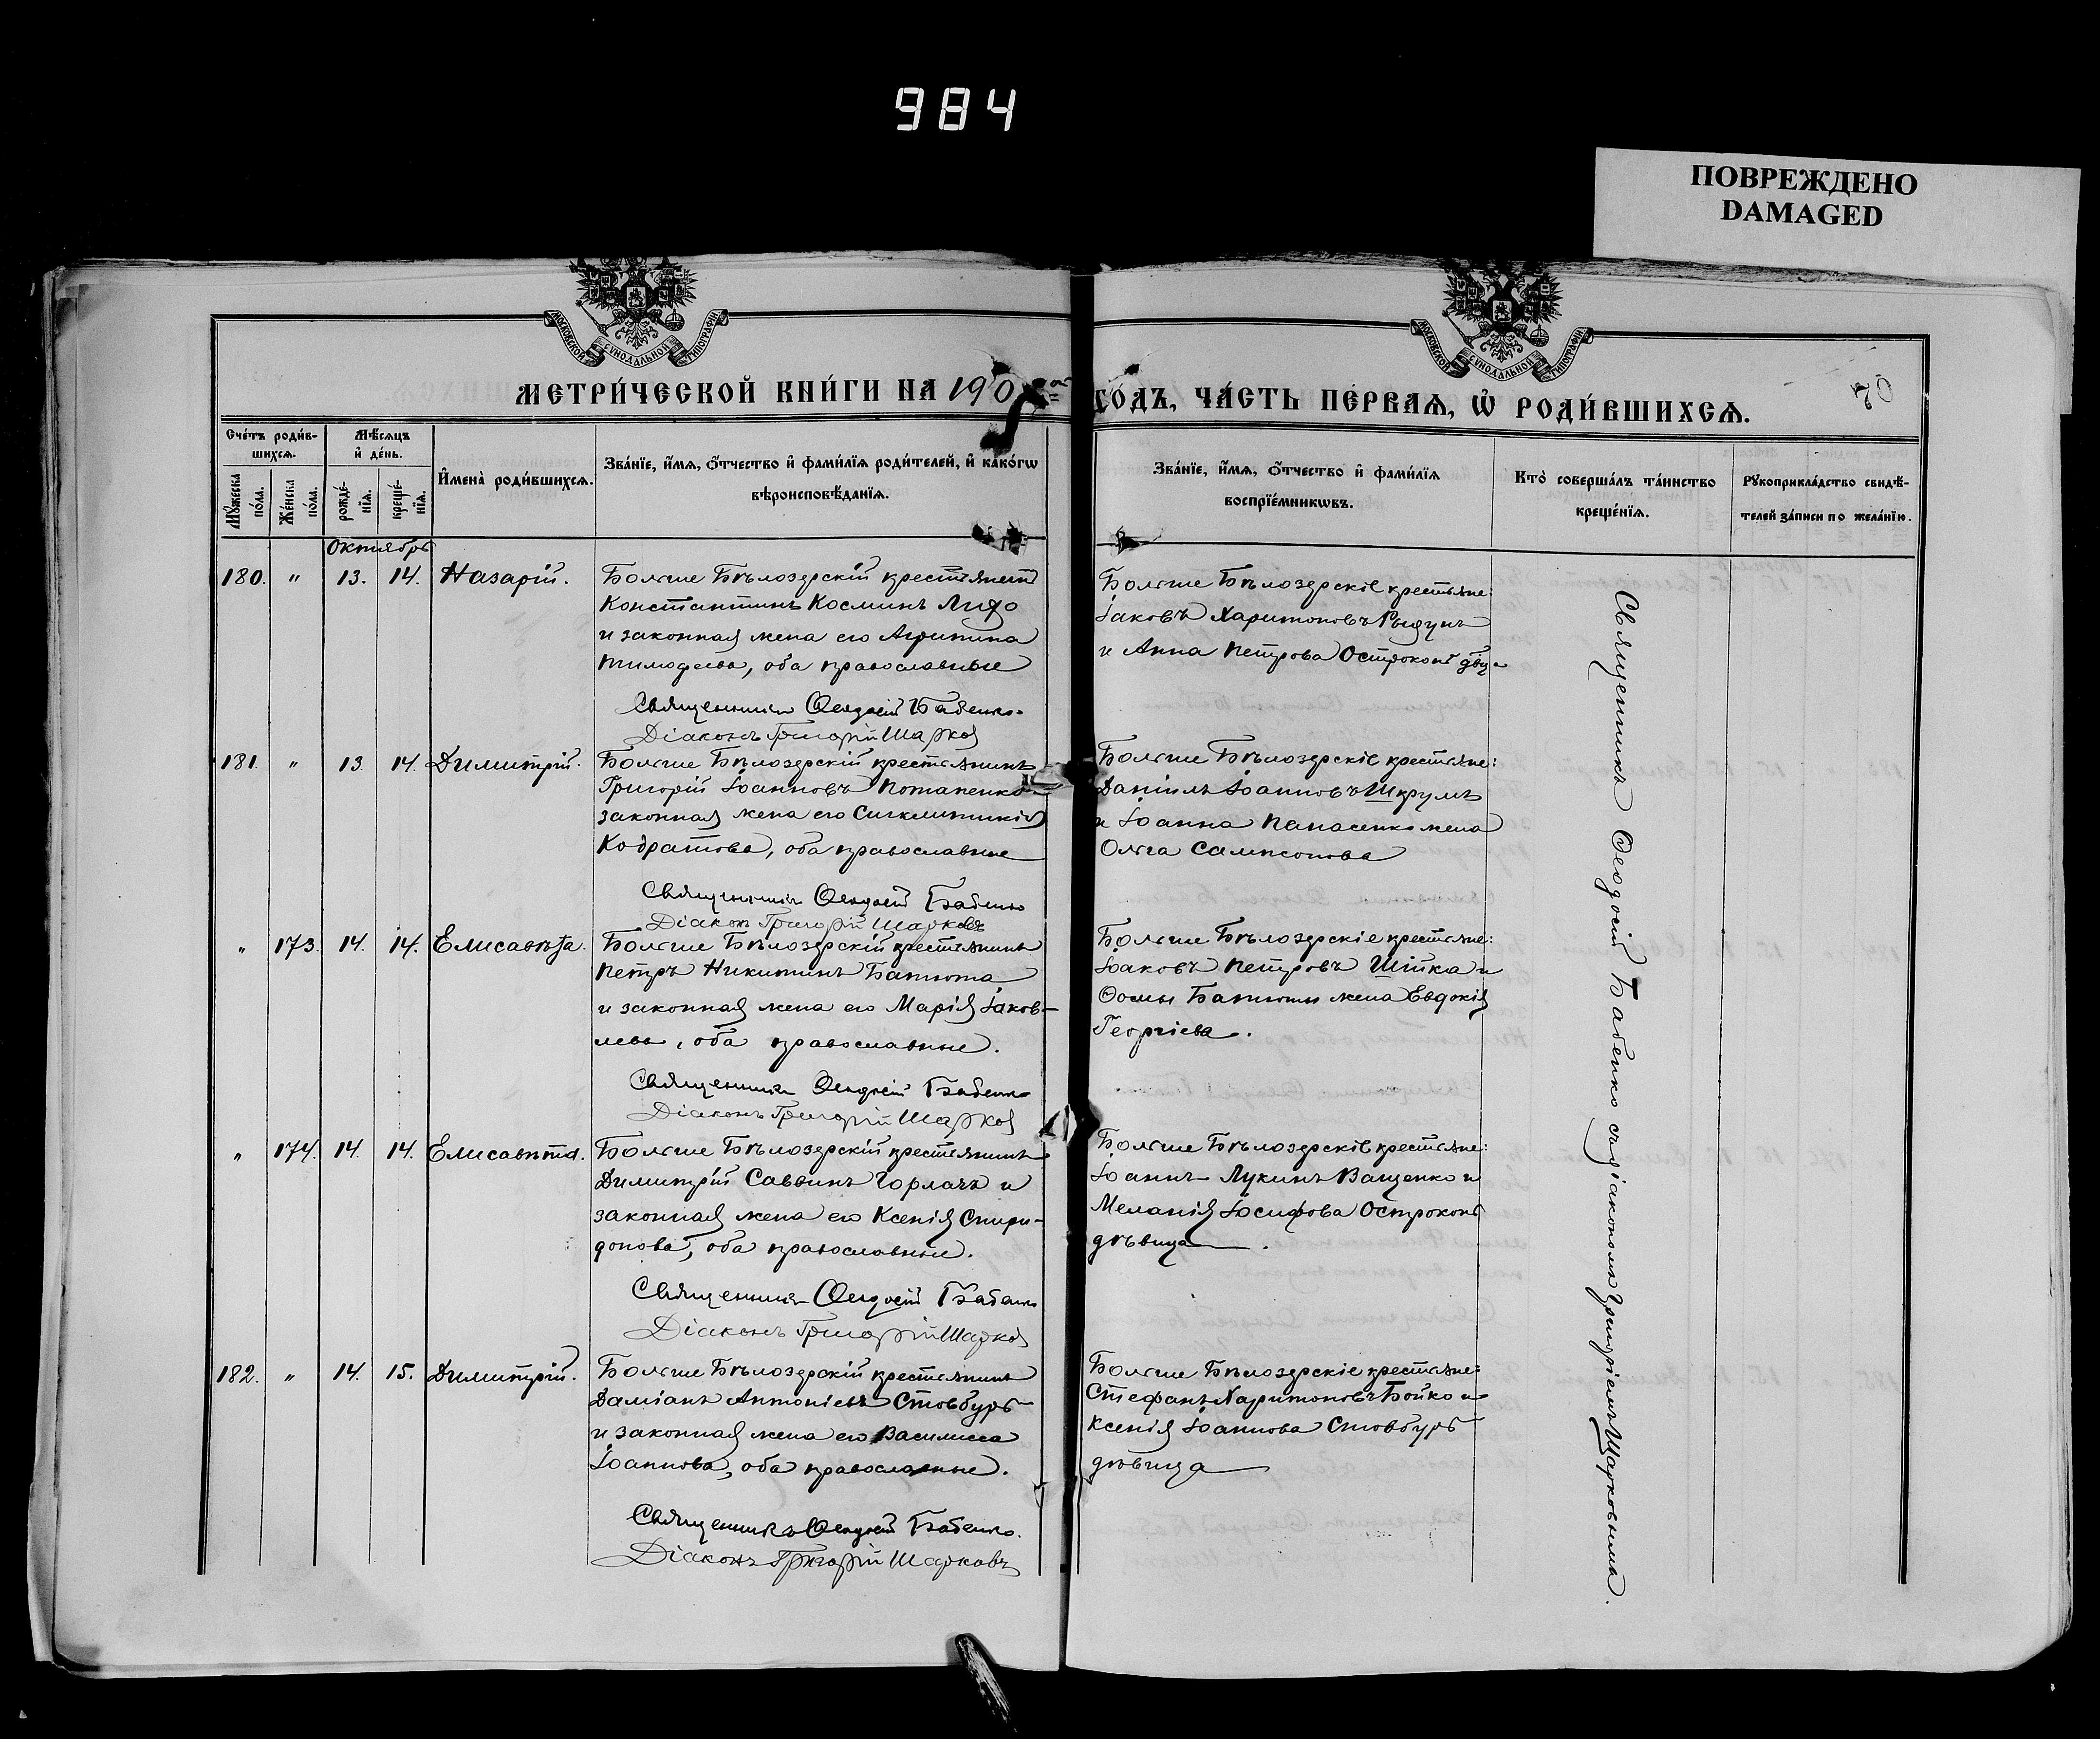 984
ПОВРЕЖДЕНО
DAMAGED
МОСКОВСКОЙ СУНОДАЛЬНОЙ ТИПОГРАФІИ
МОСКОВСКОЙ СУНОДАЛЬНОЙ ТИПОГРАФІИ
МЕТРИ́ЧЕСКОЙ КНИ́ГИ НА 190
ГО́ДЪ, ЧА́СТЬ ПЕ́РВАѦ, Ѡ҆ РОДИ́ВШИХСѦ.
70
Сче́тъ роди́в-
шихсѧ.
Мꙋ́жеска по́ла.
Же́нска по́ла.
Мѣ́сѧцъ
и҆ де́нь.
рожде́-
нїѧ.
креще́-
нїѧ.
И҆мена̀ роди́вшихсѧ.
Зва́нїе, и҆́мѧ, ѻ҆́тчество и҆ фами́лїѧ роди́телей, и҆ како́гѡ
вѣроисповѣ́данїѧ.
Зва́нїе, и҆́мѧ, ѻ҆́тчество и҆ фами́лїѧ
воспрїе́мникѡвъ.
Кто̀ соверша́лъ та́инство
креще́нїѧ.
Рꙋкоприкла́дство свидѣ́-
телей за́писи по жела́нїю.
Октябрь
180. " 13. 14. Назарій.
Больше Бѣлозерскій крестьянинъ
Константинъ Косминъ
и законная жена его Агрипина
Тимофеева, оба православные
Священникъ Ѳеодосій Бабенко
Діаконъ Григорій Шарков
Больше Бѣлозерскіе крестьяне:
Іаковъ Харитоновъ Рыдунъ
и Анна Петрова Остроконь двца
181. " 13. 14. Димитрій.
Больше Бѣлозерскій крестьянинъ
Григорій Іоанновъ Потапенко и
законная жена его Сигклитикія
Кодратова, оба православные
Священникъ Ѳеодосій Бабенко
Діаконъ Григорій Шарковъ
Больше Бѣлозерскіе крестьяне:
Даніилъ Іоанновъ Шкрумъ
и Іоанна Панасенко жена
Ольга Сампсонова
" 173. 14. 14. Елисавѣта.
Больше Бѣлозерскій крестьянинъ
Петръ Никитинъ Батюта
и законная жена его Марія Іаков-
лева, оба православные.
Священникъ Ѳеодосій Бабенко
Діаконъ Григорій Шарков
Больше Бѣлозерскіе крестьяне:
Іаковъ Петровъ Шійка и
Ѳомы Батюты жена Евдокія
Георгіева.
" 174. 14. 14. Елисавѣта.
Больше Бѣлозерскій крестьянинъ
Димитрій Саввинъ Горлачъ и
законная жена его Ксенія Спири-
донова, оба православные.
Священникъ Ѳеодосій Бабенко
Діаконъ Григорій Шарков
Больше Бѣлозерскіе крестьяне:
Іоаннъ Лукинъ Ващенко и
Меланія Іосифова Остроконь
дѣвица.
182. " 14. 15. Димитрій.
Больше Бѣлозерскій крестьянинъ
Даміанъ Антоніевъ Стовбуръ
и законная жена его Василисса
Іоаннова, оба православные.
Священникъ Ѳеодосій Бабенко.
Діаконъ Григорій Шарковъ
Больше Бѣлозерскіе крестьяне:
Стефанъ Харитоновъ Бойко и
Ксенія Іоаннова Стовбуръ
дѣвица
Священникъ Ѳеодосій Бабенко съ діакономъ Григоріемъ Шарковымъ.